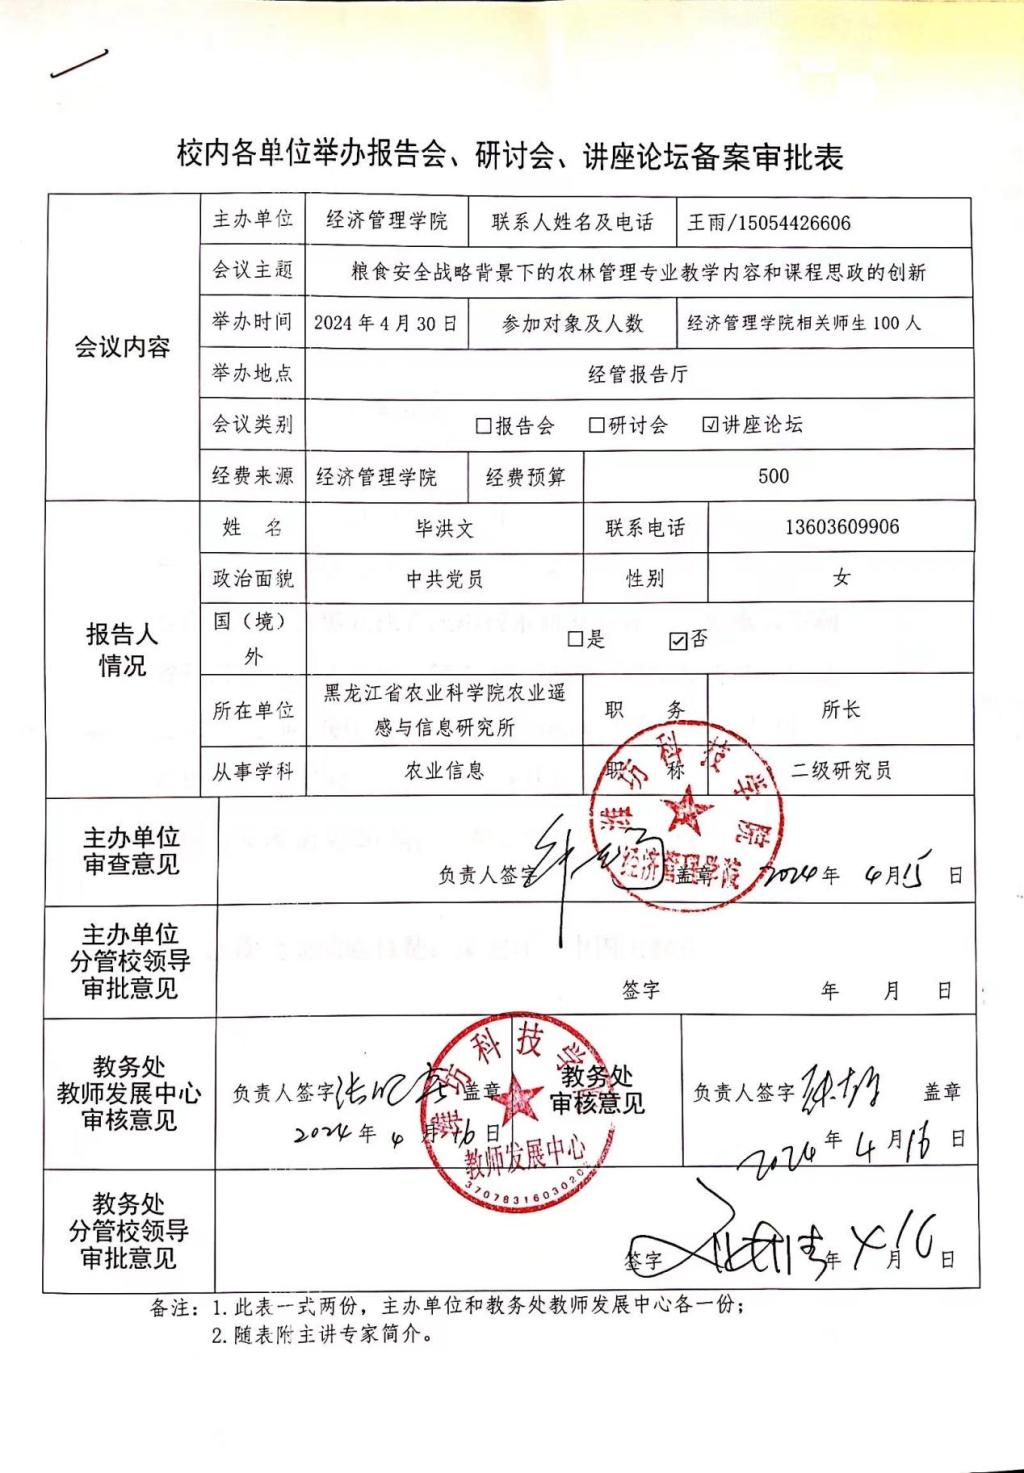 校内各单位举办报告会、研讨会、讲座论坛备案审批表
会议内容
主办单位 经济管理学院 联系人姓名及电话 王雨/15054426606
会议主题 粮食安全战略背景下的农林管理专业教学内容和课程思政的创新
举办时间 2024年4月30日 参加对象及人数 经济管理学院相关师生100人
举办地点 经管报告厅
会议类别 □报告会 □研讨会 ☑讲座论坛
经费来源 经济管理学院 经费预算 500
报告人
情况
姓 名 毕洪文 联系电话 13603609906
政治面貌 中共党员 性别 女
国（境）
外
□是 ☑否
所在单位 黑龙江省农业科学院农业遥
感与信息研究所
职 务 所长
从事学科 农业信息 职 称 二级研究员
主办单位
审查意见
负责人签字 盖章 2024年 4月15日
潍坊科技学院
经济管理学院
主办单位
分管校领导
审批意见
签字 年 月 日
教务处
教师发展中心
审核意见
负责人签字 盖章
2024年 4月16日
潍坊科技学院
教师发展中心
教务处
审核意见
负责人签字 盖章
2024年 4月16日
教务处
分管校领导
审批意见
签字 年4月16日
备注：1.此表一式两份，主办单位和教务处教师发展中心各一份；
2.随表附主讲专家简介。